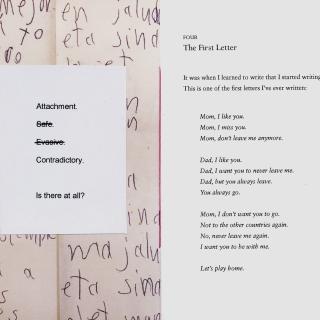 mejor en jalu
eta sind
Attachment.
Safe.
Evasive.
Contradictory.
Is there at all?
ma jalu
a eta sind
FOUR
The First Letter
It was when I learned to write that I started writing
This is one of the first letters I've ever written:
Mom, I like you.
Mom, I miss you.
Mom, don't leave me anymore.
Dad, I like you.
Dad, I want you to never leave me.
Dad, but you always leave.
You always go.
Mom, I don't want you to go.
Not to the other countries again.
No, never leave me again.
I want you to be with me.
Let's play home.